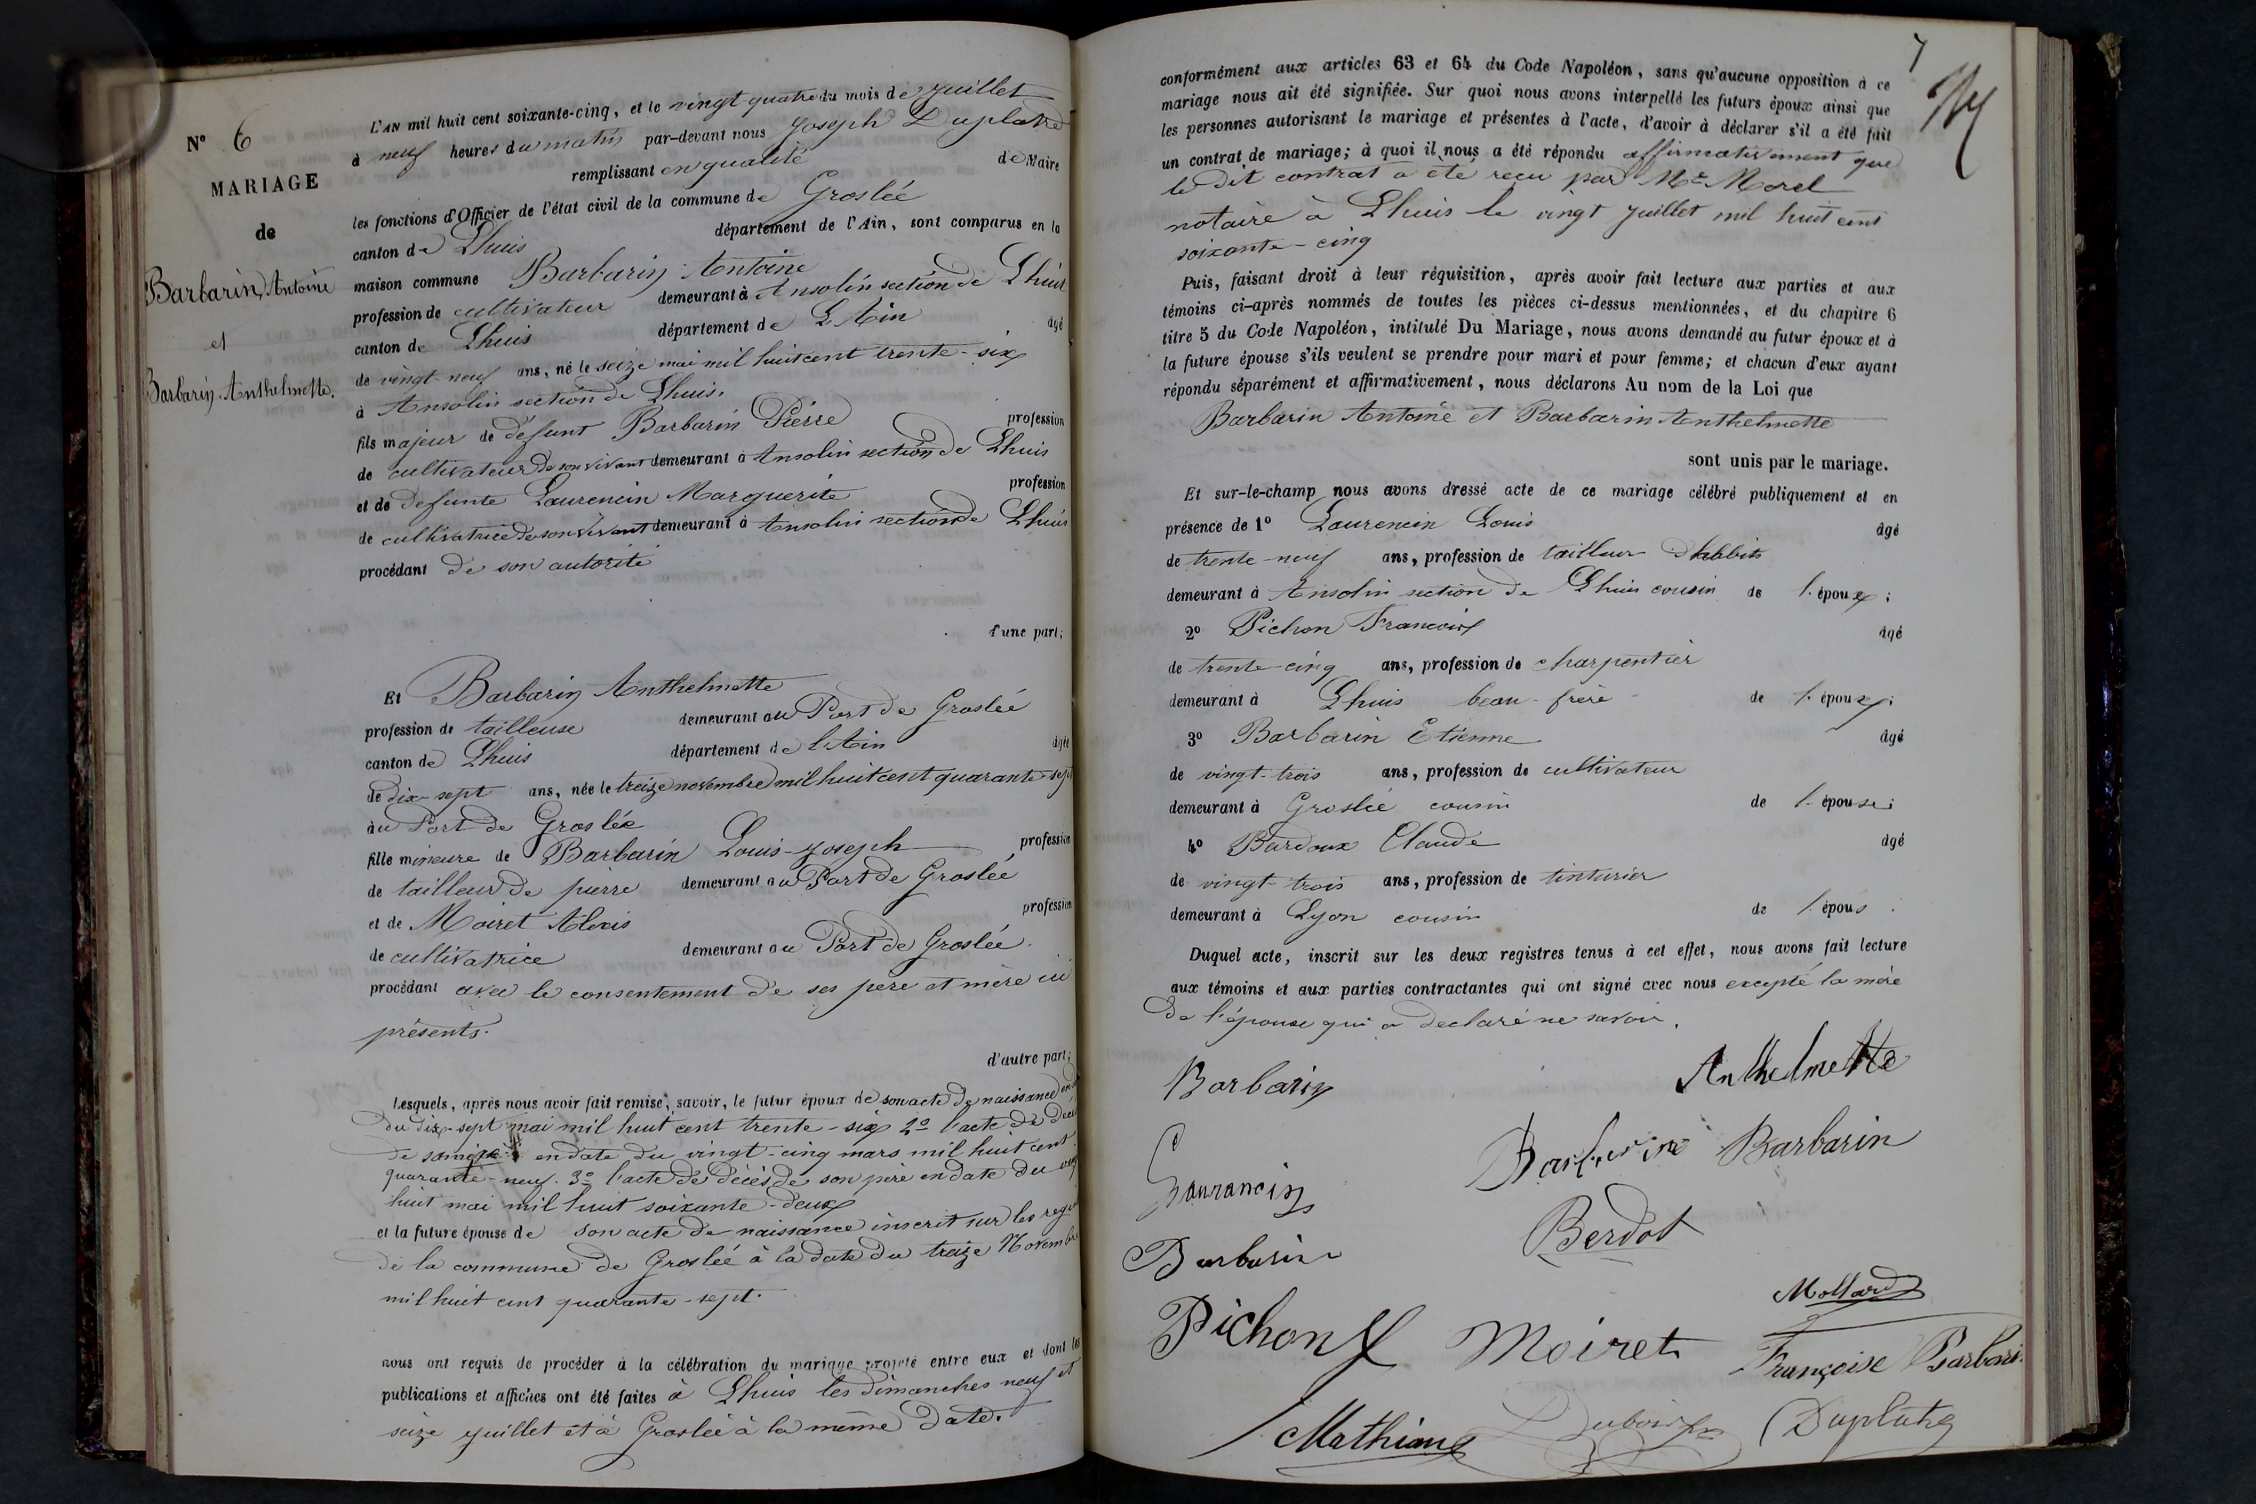 N° 6
MARIAGE
de
Barbarin Antoine
et
Barbarin Anthelmette.
L'AN mil huit cent soixante-cinq, et le vingt quatre du mois de juillet
à neuf heures du matin par-devant nous Joseph Duplatre
remplissant en qualité de Maire
les fonctions d'Officier de l'état civil de la commune de Groslée
canton de Lhuis département de l'Ain, sont comparus en la
maison commune Barbarin Antoine
profession de cultivateur demeurant à Ansolin section de Lhuis
canton de Lhuis département de L'Ain âgé
de vingt-neuf ans, né le seize mai mil huit cent trente-six
à Ansolin section de Lhuis.
fils majeur de défunt Barbarin Pierre profession
de cultivateur de son vivant demeurant à Ansolin section de Lhuis
et de défunte Laurencin Marguerite profession
de cultivatrice de son vivant demeurant à Ansolin section de Lhuis
procédant de son autorité
d'une part;
Et Barbarin Anthelmette
profession de tailleuse demeurant au Port de Groslée
canton de Lhuis département de l'Ain âgée
de dix-sept ans, née le treize novembre mil huit cent quarante-sept
au Port de Groslée
fille mineure de Barbarin Louis-Joseph profession
de tailleur de pierre demeurant au Port de Groslée
et de Moiret Alexis profession
de cultivatrice demeurant au Port de Groslée.
procédant avec le consentement de ses père et mère ici
présents.
d'autre part;
Lesquels, après nous avoir fait remise, savoir, le futur époux de son acte de naissance en
du dix-sept mai mil huit cent trente-six 2° l'acte de décès
de sa mère en date du vingt-cinq mars mil huit cent
quarante-neuf. 3° l'acte de décès de son père en date du
huit mai mil huit soixante-deux
et la future épouse de son acte de naissance inscrit sur les
de la commune de Groslée à la date du treize Novembre
mil huit cent quarante-sept.
nous ont requis de procéder à la célébration du mariage projeté entre eux et dont les
publications et affiches ont été faites à Lhuis les dimanches neuf et
seize juillet et à Groslée à la même date.
7
conformément aux articles 63 et 64 du Code Napoléon, sans qu'aucune opposition à ce
mariage nous ait été signifiée. Sur quoi nous avons interpellé les futurs époux ainsi que
les personnes autorisant le mariage et présentes à l'acte, d'avoir à déclarer s'il a été fait
un contrat de mariage; à quoi il nous a été répondu affirmativement que
le dit contrat a été reçu par Me Morel
notaire à Lhuis le vingt juillet mil huit cent
soixante-cinq
Puis, faisant droit à leur réquisition, après avoir fait lecture aux parties et aux
témoins ci-après nommés de toutes les pièces ci-dessus mentionnées, et du chapitre 6
titre 5 du Code Napoléon, intitulé Du Mariage, nous avons demandé au futur époux et à
la future épouse s'ils veulent se prendre pour mari et pour femme; et chacun d'eux ayant
répondu séparément et affirmativement, nous déclarons Au nom de la Loi que
Barbarin Antoine et Barbarin Anthelmette
sont unis par le mariage.
Et sur-le-champ nous avons dressé acte de ce mariage célébré publiquement et en
présence de 1° Laurencin Louis âgé
de trente-neuf ans, profession de tailleur d'habbits
demeurant à Ansolin section de Lhuis cousin de l'époux;
2° Pichon François âgé
de trente-cinq ans, profession de charpentier
demeurant à Lhuis beau-frère de l'époux;
3° Barbarin Etienne âgé
de vingt-trois ans, profession de cultivateur
demeurant à Groslée cousin de l'épouse;
4° Bardoux Claude âgé
de vingt-trois ans, profession de tinturier
demeurant à Lyon cousin de l'épous
Duquel acte, inscrit sur les deux registres tenus à cet effet, nous avons fait lecture
aux témoins et aux parties contractantes qui ont signé avec nous excepté la mère
de l'épouse qui a déclaré ne savoir.
Barbarin Anthelmette
Barbarin Barbarin
Laurancin
Berdot
Barbarin
Mollard
Pichon Moiret Françoise Barbari
Mathian Dubois Duplatre